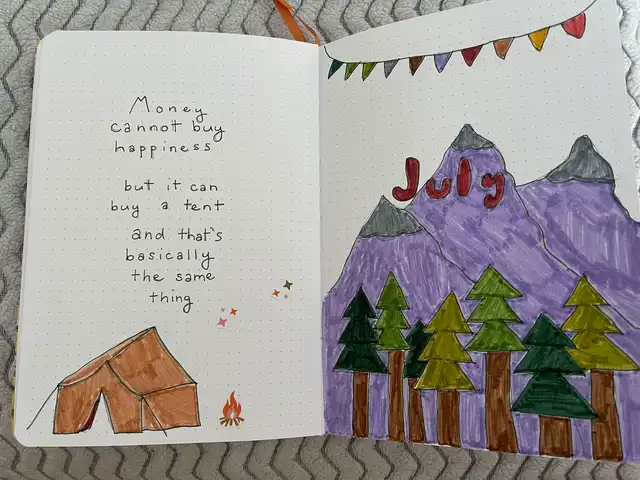 Money
cannot buy
happiness
but it can
buy a tent
and that's
basically
the same
thing
July